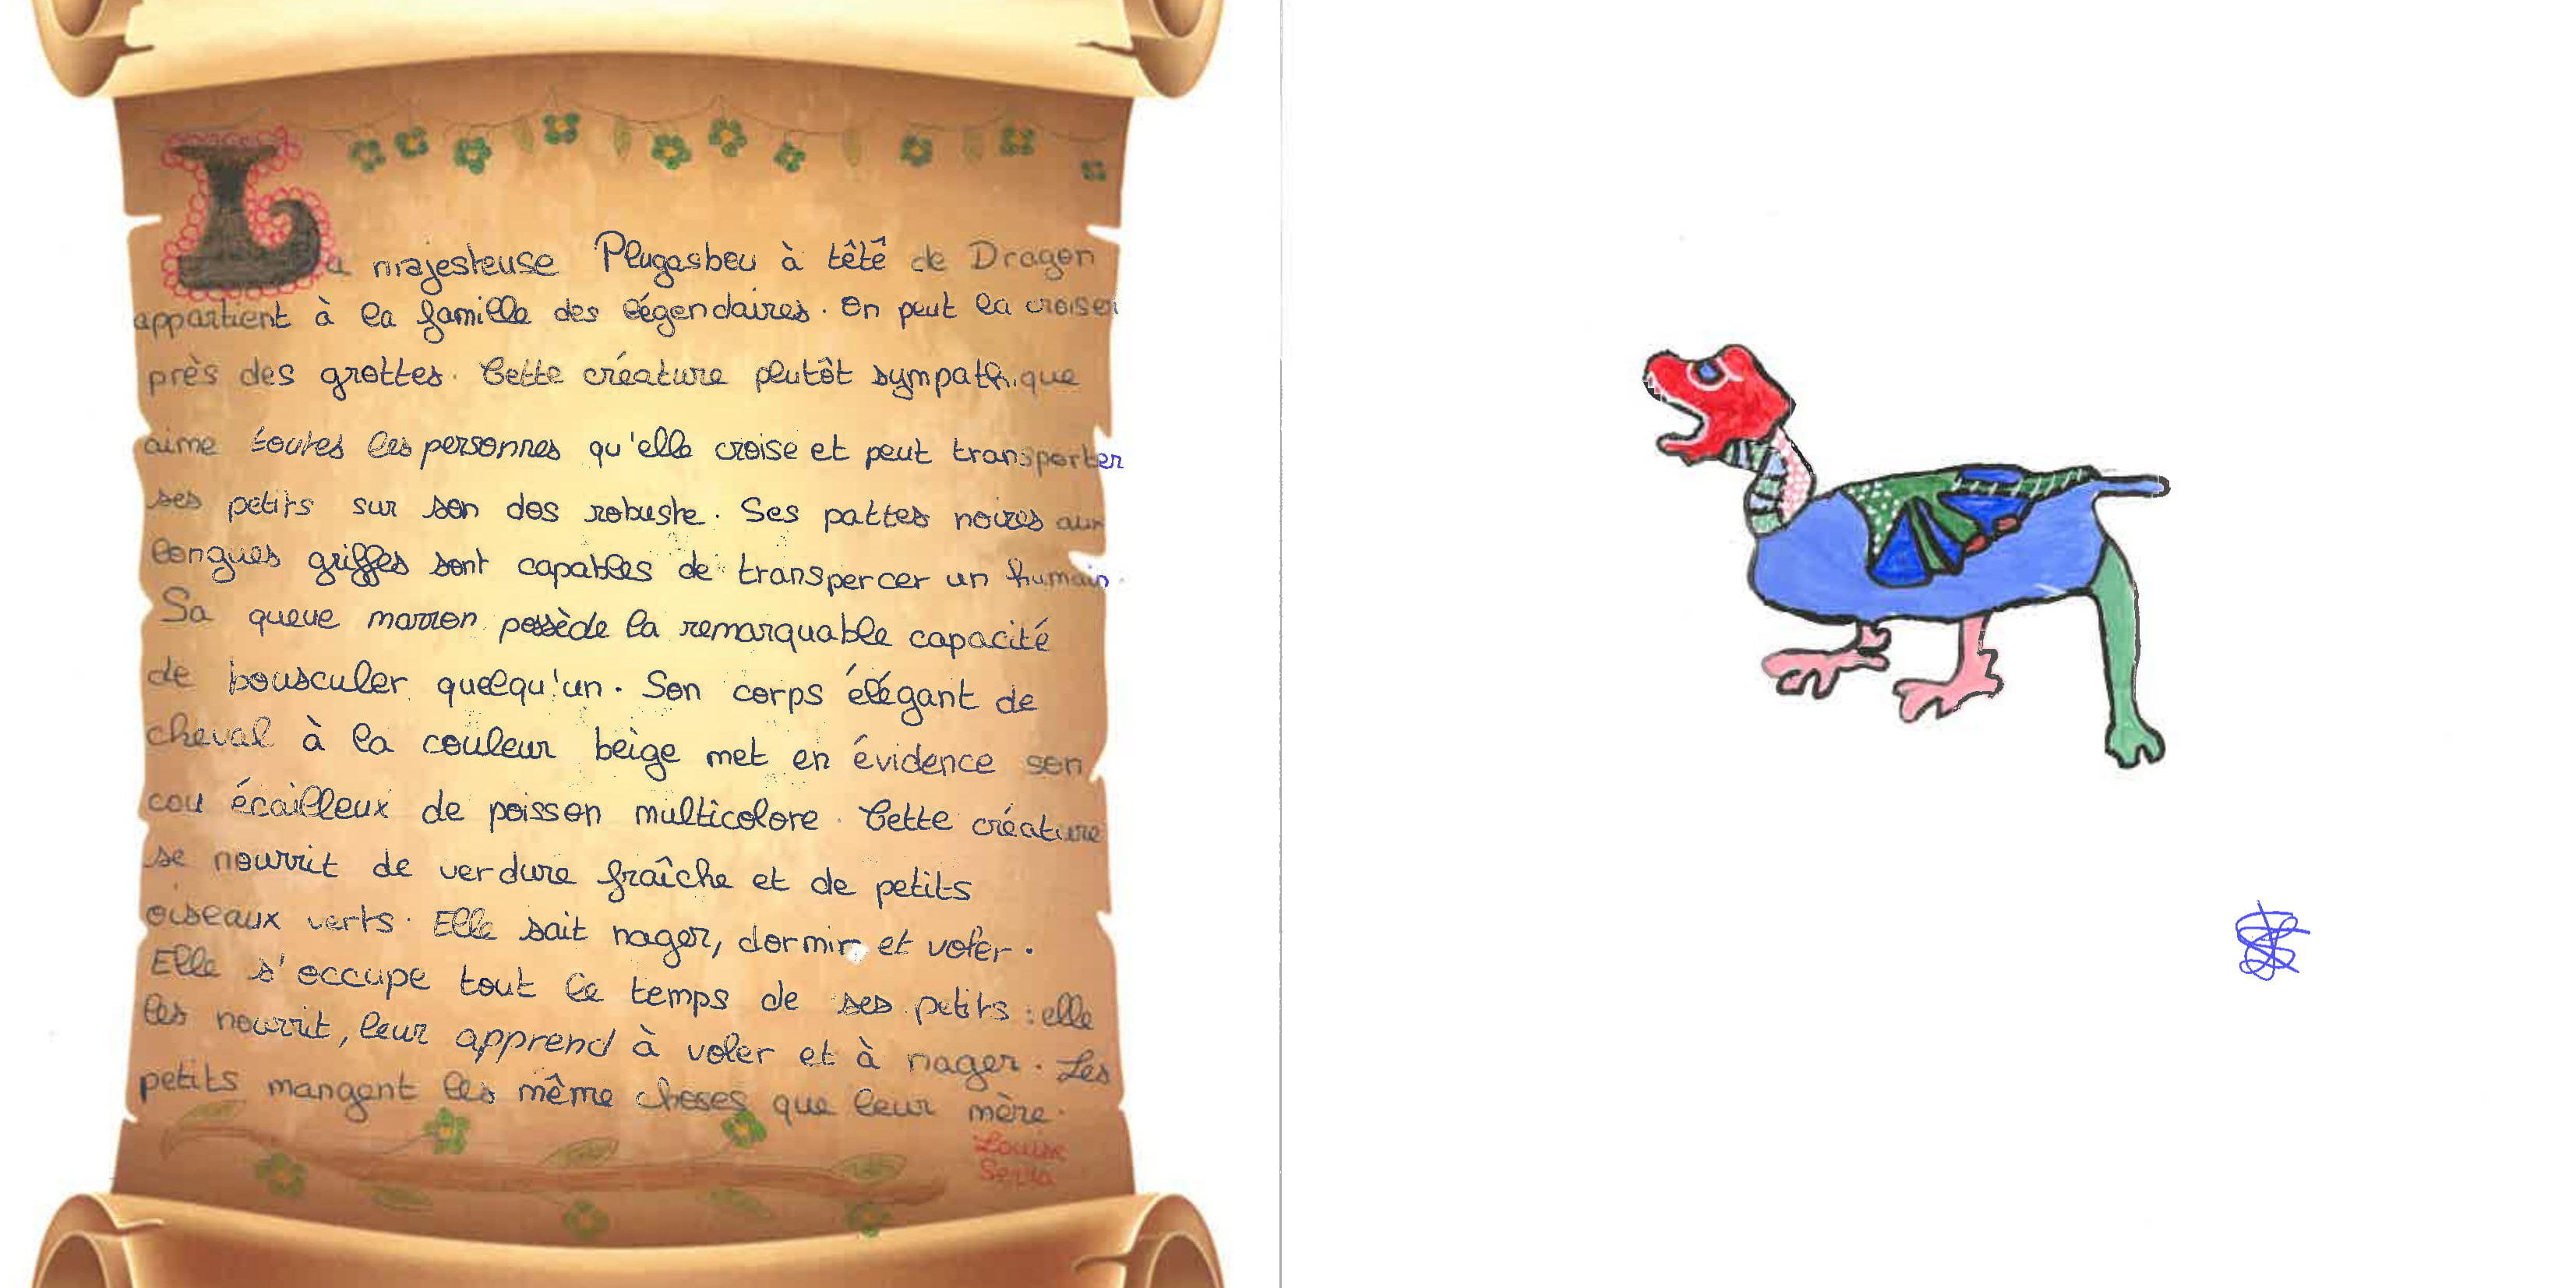 La majesteuse Plugasbeu à têtê de Dragon
appartient à la famille des légendaires. On peut la croiser
près des grottes. Cette créature plutôt sympathique
aime toutes les personnes qu'elle croise et peut transporter
ses petits sur son dos robuste. Ses pattes noires aux
longues griffes sont capables de transpercer un humain.
Sa queue marron possède la remarquable capacité
de bousculer quelqu'un. Son corps élégant de
cheval à la couleur beige met en évidence son
cou écailleux de poisson multicolore. Cette créature
se nourrit de verdure fraîche et de petits
oiseaux verts. Elle sait nager, dormir et voler.
Elle s'occupe tout le temps de ses petits : elle
les nourrit, leur apprend à voler et à nager. Les
petits mangent les même choses que leur mère.
Louise